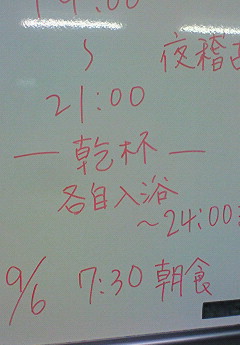 19:00
〜 夜稽古
21:00
— 乾杯 —
各自入浴
~24:00
9/6 7:30 朝食